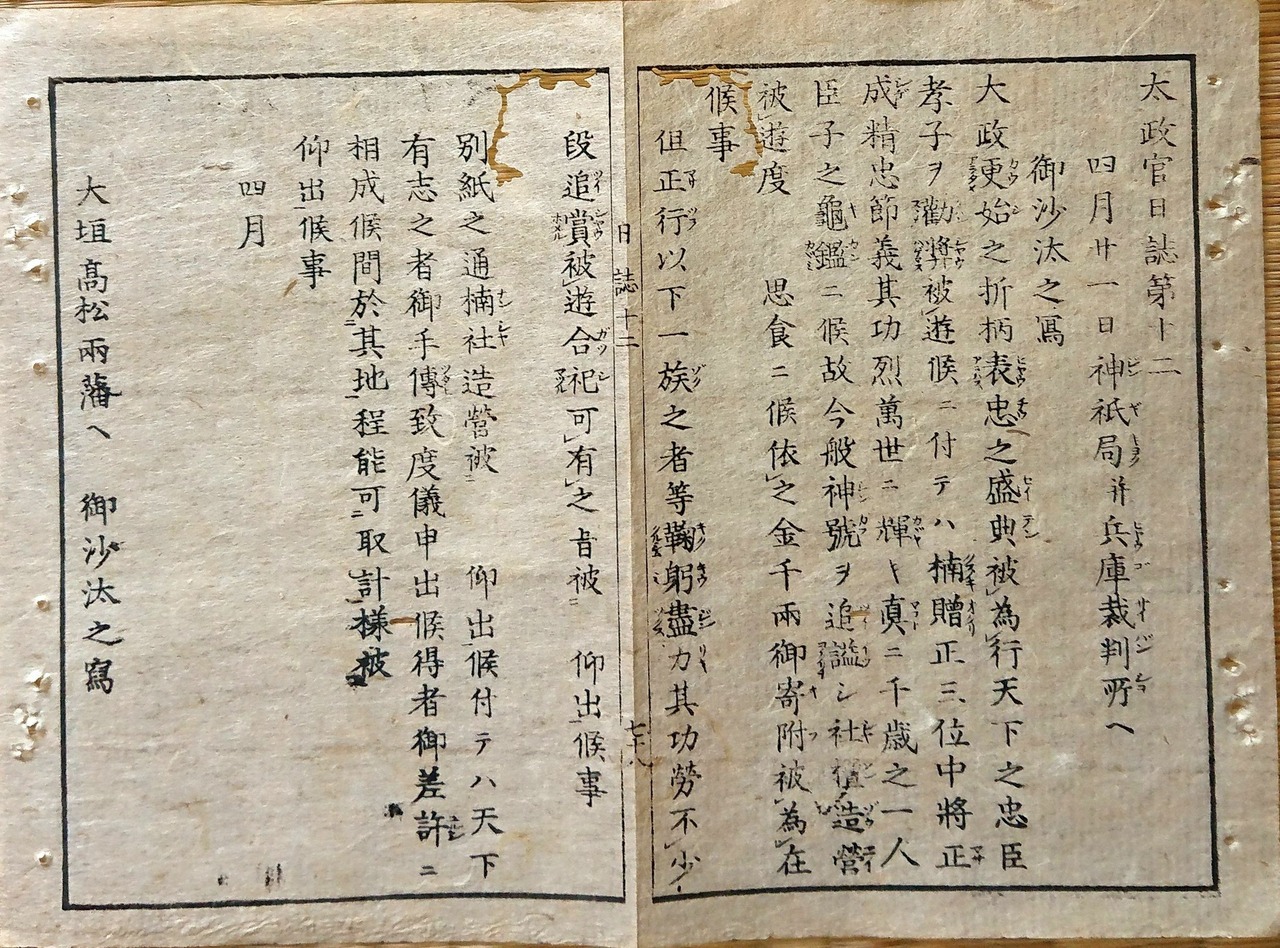 太政官日誌第十二
四月廿一日神祇局并兵庫裁判所ヘ
御沙汰之寫
大政更始之折柄表忠之盛典被為行天下之忠臣
孝子ヲ勸奬被遊候ニ付テハ楠贈正三位中將正
成精忠節義其功烈萬世ニ輝キ真ニ千歳之一人
臣子之龜鑑ニ候故今般神號ヲ追謚シ社檀造營
被遊度　思食ニ候依之金千兩御寄附被為在
候事
但正行以下一族之者等鞠躬盡力其功勞不少
日誌十二
七十八
段追賞被遊合祀可有之旨被　仰出候事
別紙之通楠社造營被　仰出候付テハ天下
有志之者御手傳致度儀申出候得者御差許ニ
相成候間於其地程能可取計樣被
仰出候事
四月
大垣髙松兩藩ヘ　御沙汰之寫